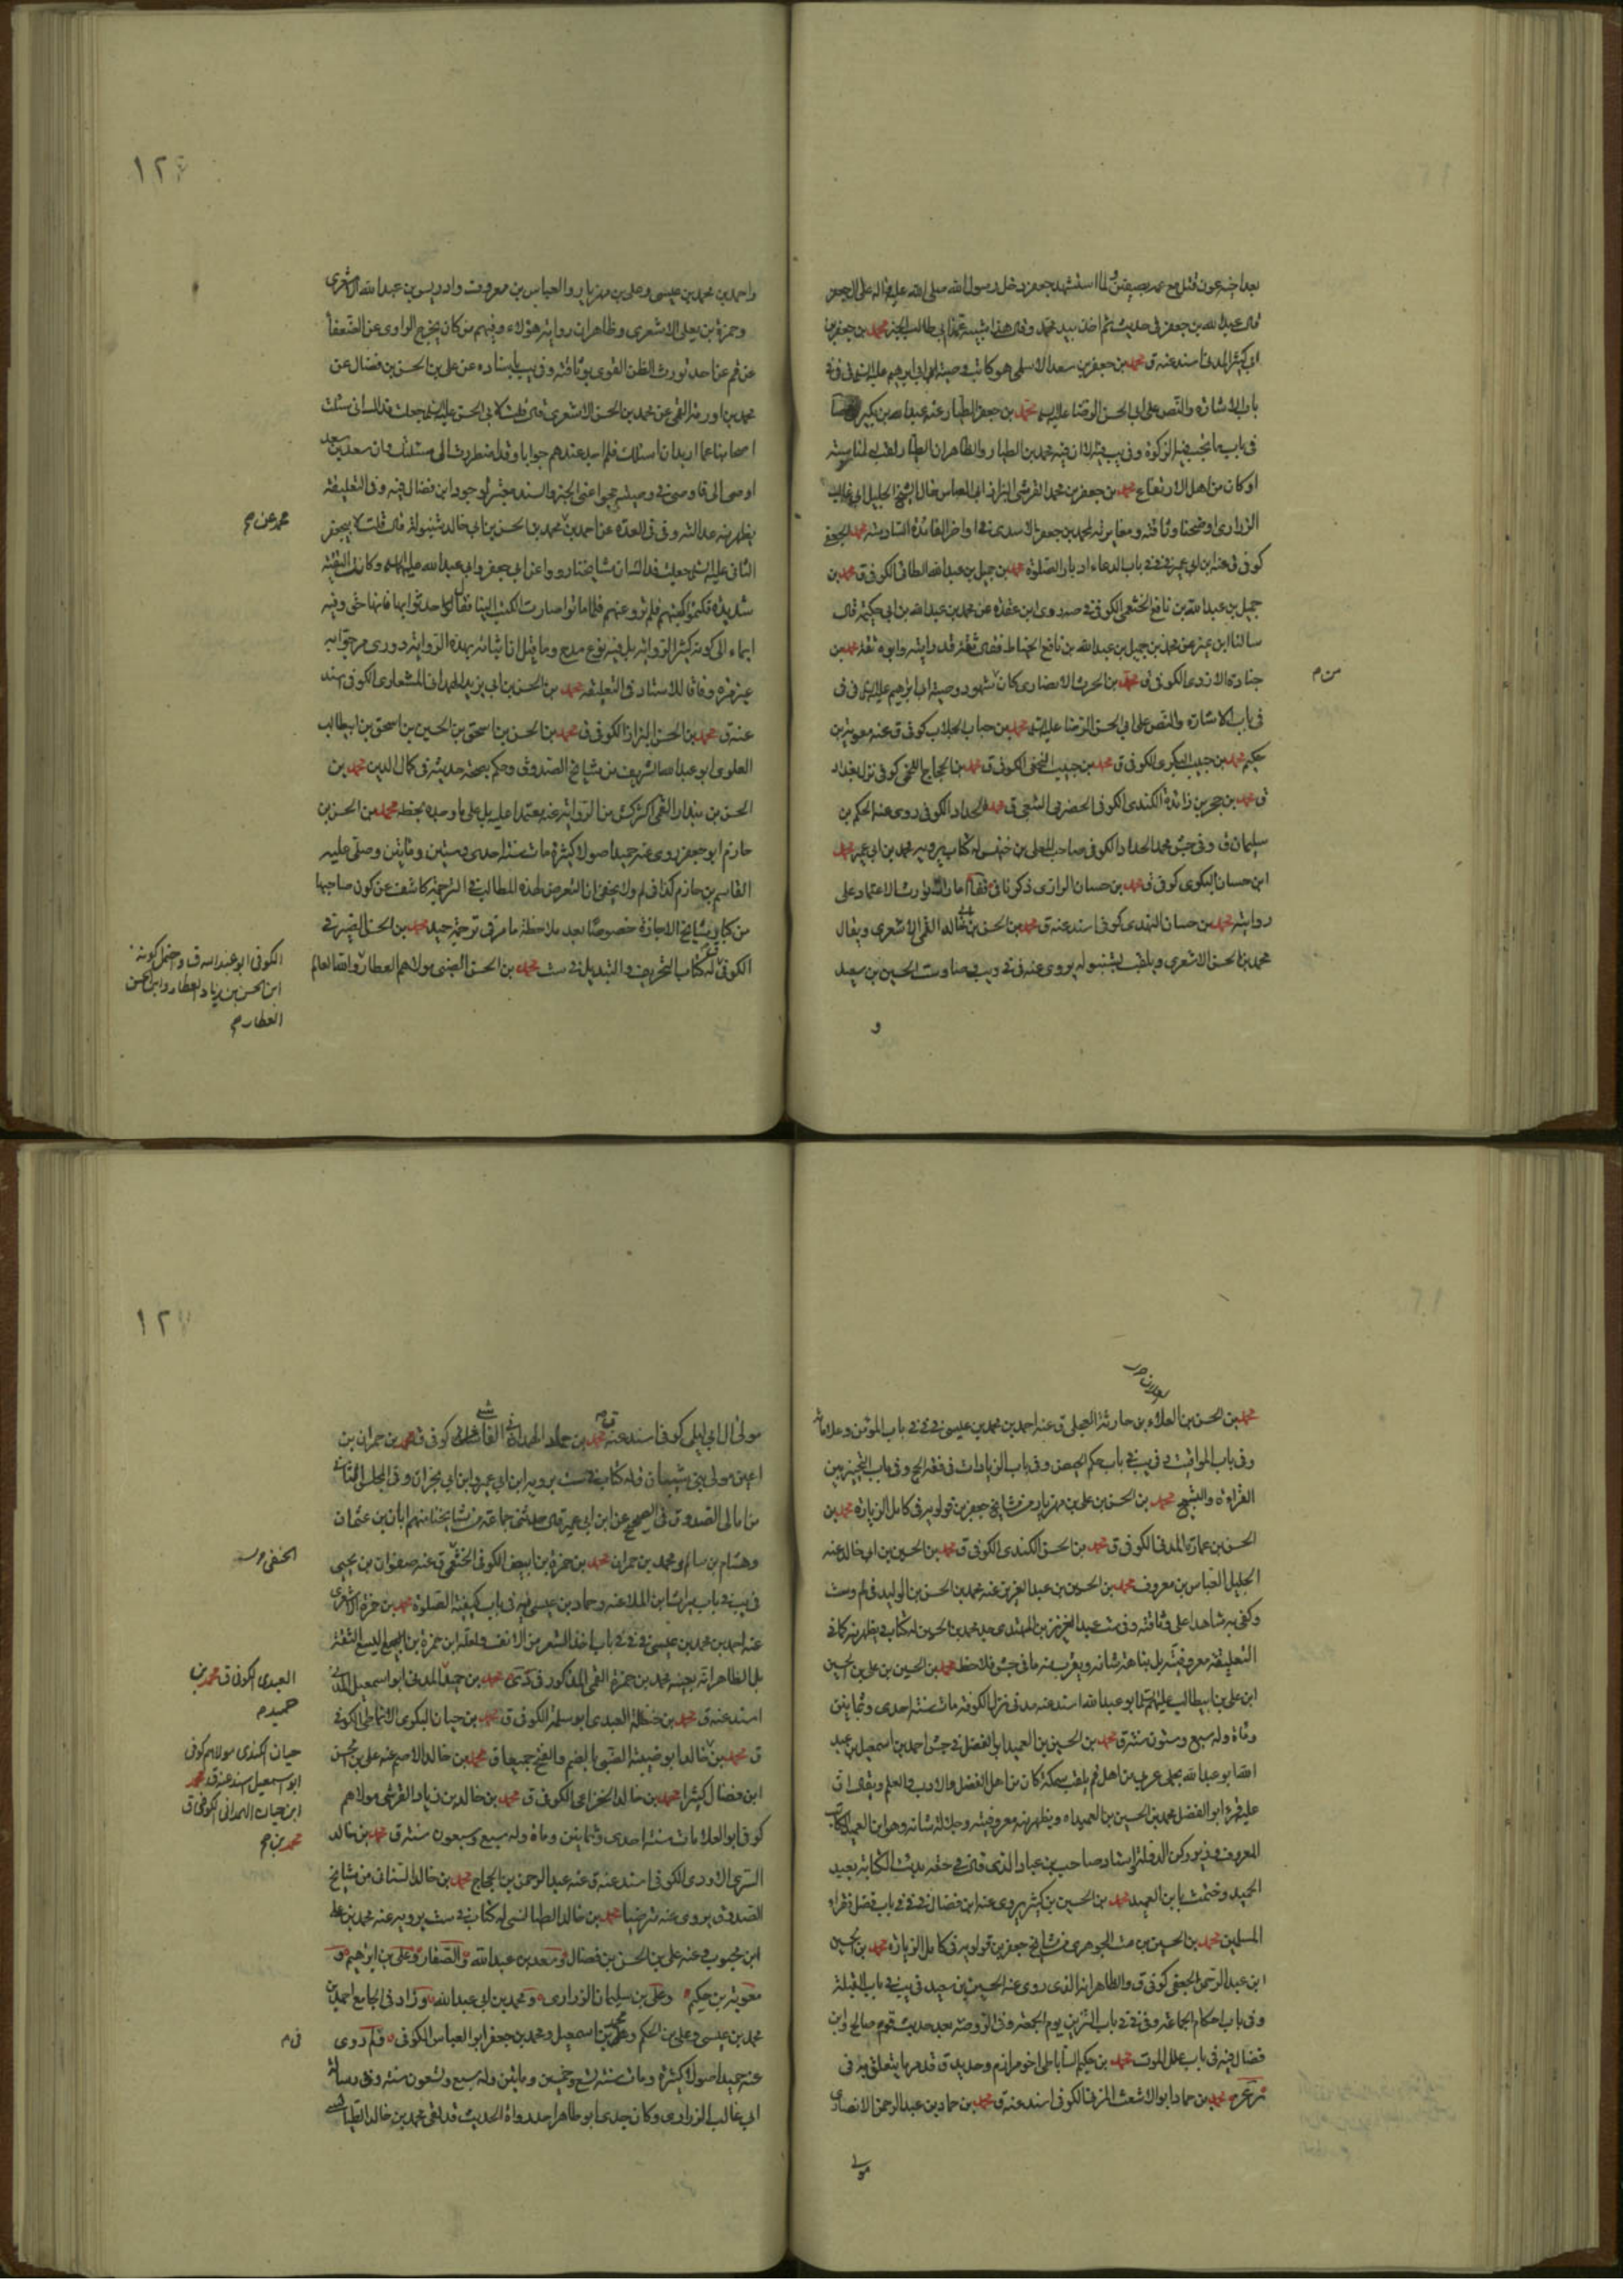 بعد اخيه عون قتل مع عمه بصفين ولما استشهد جعفر دخل رسول الله صلى الله عليه واله على ال جعفر
قال عبد الله بن جعفر في حديث ثم اخذ بيد محمد وقال هذا شبيه عمنا ابي طالب الخبر محمد بن جعفر بن
ابي كثير المدني اسند عنه ق محمد بن جعفر بن سعد الاسلمي هو كاتب وصية ابي ابراهيم عليه السلم في في
باب الاشارة والنص على ابي الحسن الرضا عليه السلم محمد بن جعفر الطيار عنه عبد الله بن بكير
في باب ما تجب فيه الزكوة وفي يب مثله الا ان فيه محمد بن الطيار والظاهر ان الطيار لقب
او كان من اهل الارتفاع محمد بن جعفر بن محمد القرشي الرزاز ابي العباس خال الشيخ الجليل ابي غالب
الزراري اوضحنا وثاقته ومغايرته لمحمد بن جعفر الاسدي في اواخر الفائدة السادسة محمد الجعفي
كوفي ق عنه ابن ابي عمير في في باب الدعاء ادبار الصلوة محمد بن جميل بن عبد الله الطائي الكوفي ق محمد بن
جميل بن عبد الله بن نافع الخثعمي الكوفي في صه روى ابن عقدة عن محمد بن عبد الله بن ابي حكيمة قال
سالنا ابن نمير عن محمد بن جميل بن عبد الله بن نافع الحناط فقال ثقة قد رايته وابوه ثقة محمد بن
جنادة الازدي الكوفي ق محمد بن الحرث الانصاري كان شهود وصية ابي ابراهيم عليه السلم في في
من م
في باب الاشارة والنص على ابي الحسن الرضا عليه السلم محمد بن حباب الجلاب كوفي ق عنه معوية بن
حكيم محمد بن حبيب اليشكري الكوفي ق محمد بن حبيب النخعي الكوفي ق محمد بن الحجاج اللخمي كوفي نزل بغداد
ق محمد بن حجر بن زائدة الكندي الكوفي الحضرمي الشعبي ق محمد الحداد الكوفي روى عنه الحكم بن
سليمان ق وفي جش محمد الحداد الكوفي صاحب المعلى بن خنيس له كتاب يرويه محمد بن ابي عمير محمد
ابن حسان البكري كوفي ق محمد بن حسان الرازي ذكرنا في امارات تورث الاعتماد على
روايته محمد بن حسان النهدي كوفي اسند عنه ق محمد بن الحسن بن ابي خالد القمي الاشعري ويقال
محمد بن الحسن الاشعري ويلقب بشنبوله يروى عنه في في ويب وصا وست الحسين بن سعيد
و
١٢٦
واحمد بن محمد بن عيسى وعلي بن مهزيار والعباس بن معروف وادريس بن عبد الله الاشعري
وحمزة بن يعلى الاشعري وظاهر ان رواية هؤلاء وفيهم من كان يخرج الراوي عن الضعفا
عن قم عن احد تورث الظن القوي بوثاقته وفي يب باسناده عن علي بن الحسن بن فضال عن
محمد بن اورمة القمي عن محمد بن الحسن الاشعري قال قلت لابي الحسن عليه السلم جعلت فداك اني سئلت
اصحابنا عما اريد ان اسئلك فلم اجد عندهم جوابا وقد اضطررت الى مسئلتك وان سعد بن سعد
اوصى الي فاوصى في وصيته حجوا عني الخبر والسند معتبر لوجود ابن فضال فيه وفي التعليقة
يظهر منه عدالته وفي في العدة عن احمد بن محمد عن محمد بن الحسن بن ابي خالد شنبوله قال قلت لابي جعفر
محمد عن م
الثاني عليه السلم جعلت فداك ان مشايخنا رووا عن ابي جعفر وابي عبد الله عليهما السلم وكانت التقية
شديدة فكتموا كتبهم فلم ترو عنهم فلما ماتوا صارت الكتب الينا فقال حدثوا بها فانها حق وفيه
ايماء الى كونه كثير الرواية بل فيه نوع مدح وما قيل اثبات شانه بهذه الرواية دوري مر جوابه
غير مرة وفاقا للاستاد في التعليقة محمد بن الحسن بن ابي يزيد الهمداني المشعاري الكوفي اسند
عنه ق محمد بن الحسن البزاز الكوفي ق محمد بن الحسن بن اسحق بن الحسين بن اسحق بن ابيطالب
العلوي ابو عبد الله الشريف من مشايخ الصدوق وحكم بصحة حديثه في كمال الدين محمد بن
الحسن بن بندار القمي اكثر كش من الرواية عنه معتمدا عليه بل على ما وجده بخطه محمد بن الحسن بن
حازم ابو جعفر روى عنه حميد اصولا كثيرة مات سنة احدى وستين ومايتين وصلى عليه
القاسم بن حازم كذا في لم ولا يخفى ان التعرض لهذه المطالب في الترجمة كاشف عن كون صاحبها
من كبار مشايخ الاجازة خصوصا بعد ملاحظة ما مر في ترجمة حميد محمد بن الحسن الصيرفي
الكوفي له كتاب التحريف والتبديل في ست محمد بن الحسن الضبي مولاهم العطار وايضا لعالم
الكوفي ابو عبد الله ق واحتمل كونه
ابن الحسن بن زياد العطار وابن الحسن
العطار م
محمد بن الحسن بن العلاء بن حارثة البجلي ق عنه احمد بن محمد بن عيسى في في في باب المؤمن وعلاماته
وفي باب المواقيت وفي يب في باب حكم الحيض وفي باب الزيادات في فقه الحج وفي باب التخيير بين
القراءة والتسبيح محمد بن الحسن بن علي بن مهزيار من مشايخ جعفر بن قولويه في كامل الزيارة محمد بن
الحسن بن عمارة المدني الكوفي ق محمد بن الحسن الكندي الكوفي ق محمد بن الحسين بن ابي خالد عنه
الجليل العباس بن معروف محمد بن الحسين بن عبد العزيز عنه محمد بن الحسن بن الوليد في لم وست
وكفى به شاهدا على وثاقته وفي ست عبد العزيز بن المهتدي جد محمد بن الحسين له كتاب يظهر منه كما في
التعليقة معروفيته بل نباهة شانه ويقرب منه ما في جش فلاحظ محمد بن الحسين بن علي بن الحسين
ابن علي بن ابيطالب عليهم السلم ابو عبد الله اسند عنه مدني نزل الكوفة مات سنة احدى وثمانين
ومأة وله سبع وستون سنة ق محمد بن الحسين بن العميد ابو الفضل في جش احمد بن اسمعيل بن عبد
الله ابو عبد الله بجلي عربي من اهل قم يلقب سمكة كان من اهل الفضل والادب والعلم ويقال ان
عليه قرء ابو الفضل محمد بن الحسين بن العميد اه ويظهر منه معروفيته وجلالة شانه وهو ابن العميد الكاتب
المعروف وزير ركن الدولة استاد صاحب بن عباد الذي قال في حقه بدئت الكتابة بعبد
الحميد وختمت بابن العميد محمد بن الحسين بن كثير يروى عنه ابن فضال في في في باب فضل فقراء
المسلمين محمد بن الحسين بن مت الجوهري من مشايخ جعفر بن قولويه في كامل الزيارة محمد بن الحسين
ابن عبد الرحمن الجعفي كوفي ق والظاهر انه الذي روى عنه الحسين بن سعيد في يب في باب القبلة
وفي باب احكام الجماعة وفي في في باب التزين يوم الجمعة وفي الروضة بعد حديث قوم صالح وابن
فضال فيه في باب علل الموت محمد بن حكيم الساباطي اخو مرازم وحديد ق قد مر ما يتعلق به في
محمد بن حماد ابو الاشعث المزني الكوفي اسند عنه ق محمد بن حماد بن عبد الرحمن الانصاري
مولى
١٢٧
مولى ال ابي ليلى كوفي اسند عنه ق محمد بن حماد الهمداني الفايشي كوفي ق محمد بن حمران بن
اعين مولى بني شيبان ق له كتاب في ست يرويه ابن ابي عمير وابن ابي نجران وفي المجلس الثاني
من امالي الصدوق في الصحيح عن ابن ابي عمير قال حدثني جماعة من مشايخنا منهم ابان بن عثمان
وهشام بن سالم ومحمد بن حمران محمد بن حمزة بن ابيض الكوفي الخثعمي ق عنه صفوان بن يحيى
الحنفي
في يب في باب ميراث ابن الملاعنة وحماد بن عيسى فيه في باب كيفية الصلوة محمد بن حمزة الاشعري
عنه احمد بن محمد بن عيسى في في في باب اخذ الشعر من الانف ولعله ابن حمزة بن اليسع الثقة
بل الظاهر انه بعينه محمد بن حمزة القمي المذكور في محمد بن حميد المدني ابو اسمعيل المدني
اسند عنه ق محمد بن حنظلة العبدي ابو سلمة الكوفي ق محمد بن حيان البكري الانماطي الكوفي
العبدي الكوفي ق محمد بن
حميد م
ق محمد بن خالد ابو ضبيعة الضبي بالضم والفتح جميعا ق محمد بن خالد الاصم عنه علي بن الحسن
ابن فضال كثيرا محمد بن خالد الخزاعي الكوفي ق محمد بن خالد بن زياد القرشي مولاهم
حيان الكندي مولاهم كوفي
ابو اسمعيل اسند عنه ق محمد
ابن حيان الهمداني الكوفي ق
محمد بن م
كوفي ابو العلا مات سنة احدى وثمانين ومأة وله سبع وسبعون سنة ق محمد بن خالد
السري الاودي الكوفي اسند عنه ق عنه عبد الرحمن بن الحجاج محمد بن خالد السناني من مشايخ
الصدوق يروى عنه مترضيا محمد بن خالد الطيالسي له كتاب في ست يرويه عنه محمد بن علي
ابن محبوب وعنه علي بن الحسن بن فضال وسعد بن عبد الله والصفار وعلي بن ابراهيم و
معوية بن حكيم وعلي بن سليمان الزراري ومحمد بن ابي عبد الله وزاد في الجامع احمد بن
محمد بن عيسى وعلي بن الحكم ومحمد بن اسمعيل ومحمد بن جعفر ابو العباس الكوفي وفي لم روى
في م
عنه حميد اصولا كثيرة ومات سنة تسع وخمسين ومايتين وله سبع وتسعون سنة وفي رسالة
ابي غالب الزراري وكان جدي ابو طاهر احد رواة الحديث قد لقي محمد بن خالد الطيالسي